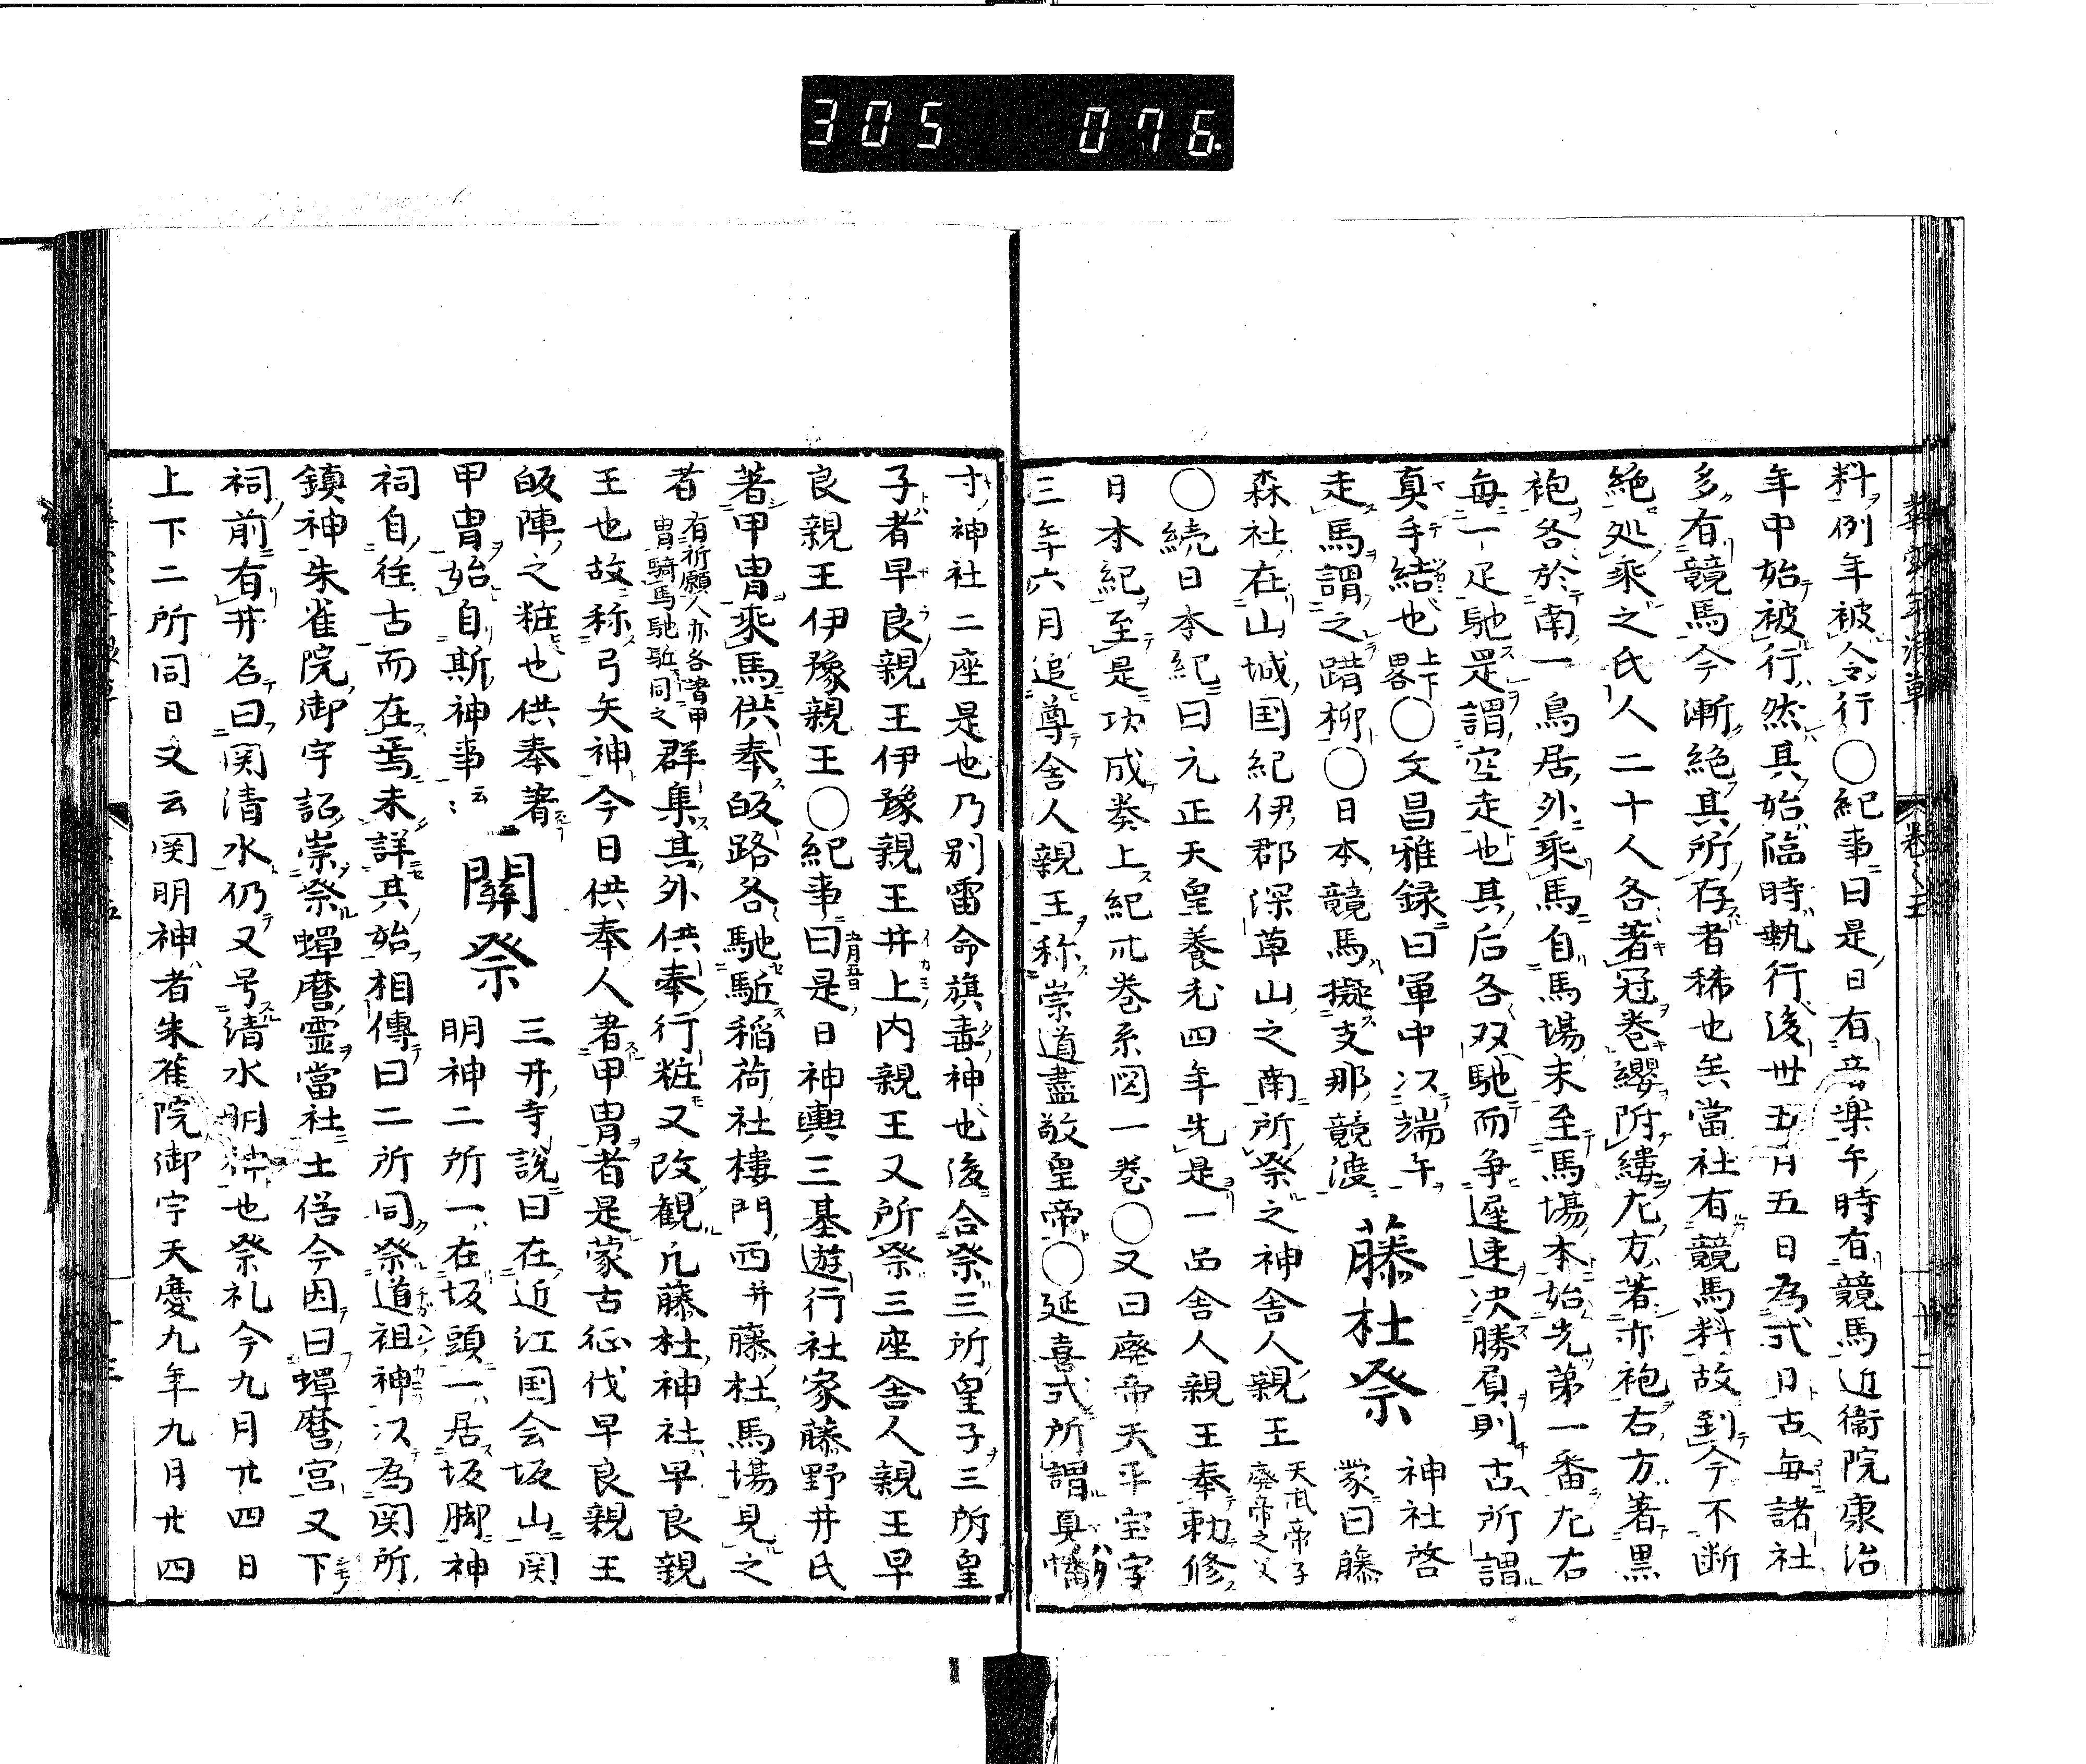 305 076
料例年被令行〇紀事曰是日有音楽午時有競馬近衛院康治
年中始被行然其始臨時執行後世五月五日為式日古毎諸社
多有競馬今漸絶其所存者稀也矣當社有競馬料故到今不断
絶処乘之氏人二十人各著冠巻纓附縷左方著赤袍右方著黒
袍各於南一鳥居外乘馬自馬場末至馬場本始先第一番左右
毎一疋馳是謂空走也其后各双馳而争遲速決勝負則古所謂
真手結也上下畧〇文昌雅録曰軍中以端午
走馬謂之躤柳〇日本競馬擬支那競渡
藤杜祭
神社啓
蒙曰藤
森社在山城国紀伊郡深草山之南所祭之神舎人親王天武帝子廃帝之父
〇続日本紀曰元正天皇養老四年先是一品舎人親王奉勅修
日本紀至是功成奏上紀卅巻系図一巻〇又曰廃帝天平宝字
三年六月追尊舎人親王称崇道盡敬皇帝〇延喜式所謂真幡
寸神社二座是也乃別雷命旗毒神也後合祭三所皇子三所皇
子者早良親王伊豫親王井上内親王又所祭三座舎人親王早
良親王伊豫親王〇紀事曰五月五日是日神輿三基遊行社家藤野井氏
著甲冑乘馬供奉皈路各馳駈稲荷社樓門西并藤杜馬場見之
者有祈願人亦各著甲冑騎馬馳駈同之群集其外供奉行粧又改観凢藤杜神社早良親
王也故称弓矢神今日供奉人著甲冑者是蒙古征伐早良親王
皈陣之粧也供奉著
甲冑始自斯神事云〻
關祭
三井寺説曰在近江国会坂山関
明神二所一在坂頭一居坂脚神
祠自往古而在焉未詳其始相傳曰二所同祭道祖神以為関所
鎮神朱雀院御宇詔崇祭蟬麿霊當社土俗今因曰蟬麿宮又下
祠前有井名曰関清水仍又号清水明神也祭礼今九月廿四日
上下二所同日又云関明神者朱雀院御宇天慶九年九月廿四